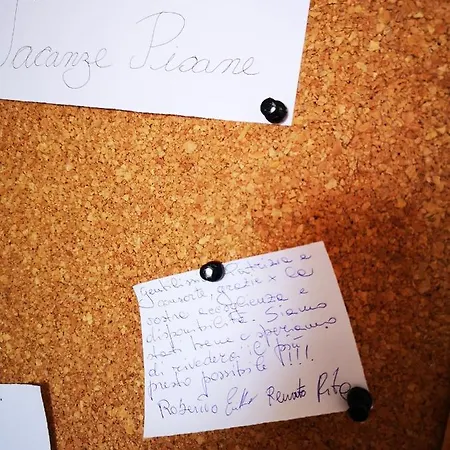 Vacanze Pisane
Gentilissima Patrizia e
consorte, grazie x la
vostra accoglienza e
disponibilità. Siamo
stati bene e speriamo
di rivederci il più
presto possibile !!!
Roberto Renato Rita